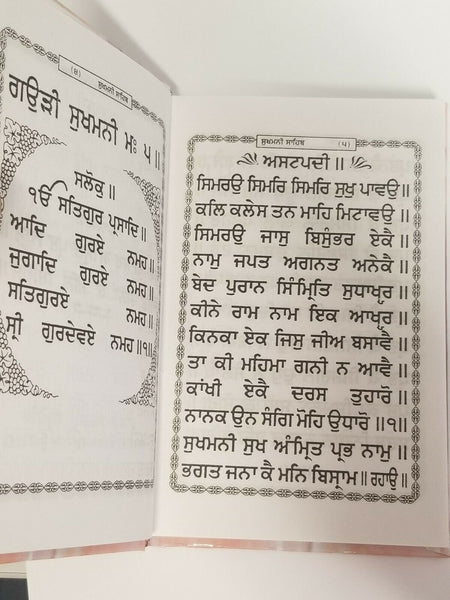 (੪) ਸੁਖਮਨੀ ਸਾਹਿਬ
ਗਉੜੀ ਸੁਖਮਨੀ ਮਃ ੫ ॥
ਸਲੋਕੁ ॥
ੴ ਸਤਿਗੁਰ ਪ੍ਰਸਾਦਿ॥
ਆਦਿ ਗੁਰਏ ਨਮਹ॥
ਜੁਗਾਦਿ ਗੁਰਏ ਨਮਹ॥
ਸਤਿਗੁਰਏ ਨਮਹ॥
ਸ੍ਰੀ ਗੁਰਦੇਵਏ ਨਮਹ॥੧॥
ਸੁਖਮਨੀ ਸਾਹਿਬ (੫)
ਅਸਟਪਦੀ॥
ਸਿਮਰਉ ਸਿਮਰਿ ਸਿਮਰਿ ਸੁਖੁ ਪਾਵਉ॥
ਕਲਿ ਕਲੇਸ ਤਨ ਮਾਹਿ ਮਿਟਾਵਉ॥
ਸਿਮਰਉ ਜਾਸੁ ਬਿਸੁੰਭਰ ਏਕੈ॥
ਨਾਮੁ ਜਪਤ ਅਗਨਤ ਅਨੇਕੈ॥
ਬੇਦ ਪੁਰਾਨ ਸਿੰਮ੍ਰਿਤਿ ਸੁਧਾਖੵਰ॥
ਕੀਨੇ ਰਾਮ ਨਾਮ ਇਕ ਆਖੵਰ॥
ਕਿਨਕਾ ਏਕ ਜਿਸੁ ਜੀਅ ਬਸਾਵੈ॥
ਤਾ ਕੀ ਮਹਿਮਾ ਗਨੀ ਨ ਆਵੈ॥
ਕਾਂਖੀ ਏਕੈ ਦਰਸ ਤੁਹਾਰੋ॥
ਨਾਨਕ ਉਨ ਸੰਗਿ ਮੋਹਿ ਉਧਾਰੋ॥੧॥
ਸੁਖਮਨੀ ਸੁਖ ਅੰਮ੍ਰਿਤ ਪ੍ਰਭ ਨਾਮੁ॥
ਭਗਤ ਜਨਾ ਕੈ ਮਨਿ ਬਿਸ੍ਰਾਮ॥ ਰਹਾਉ॥